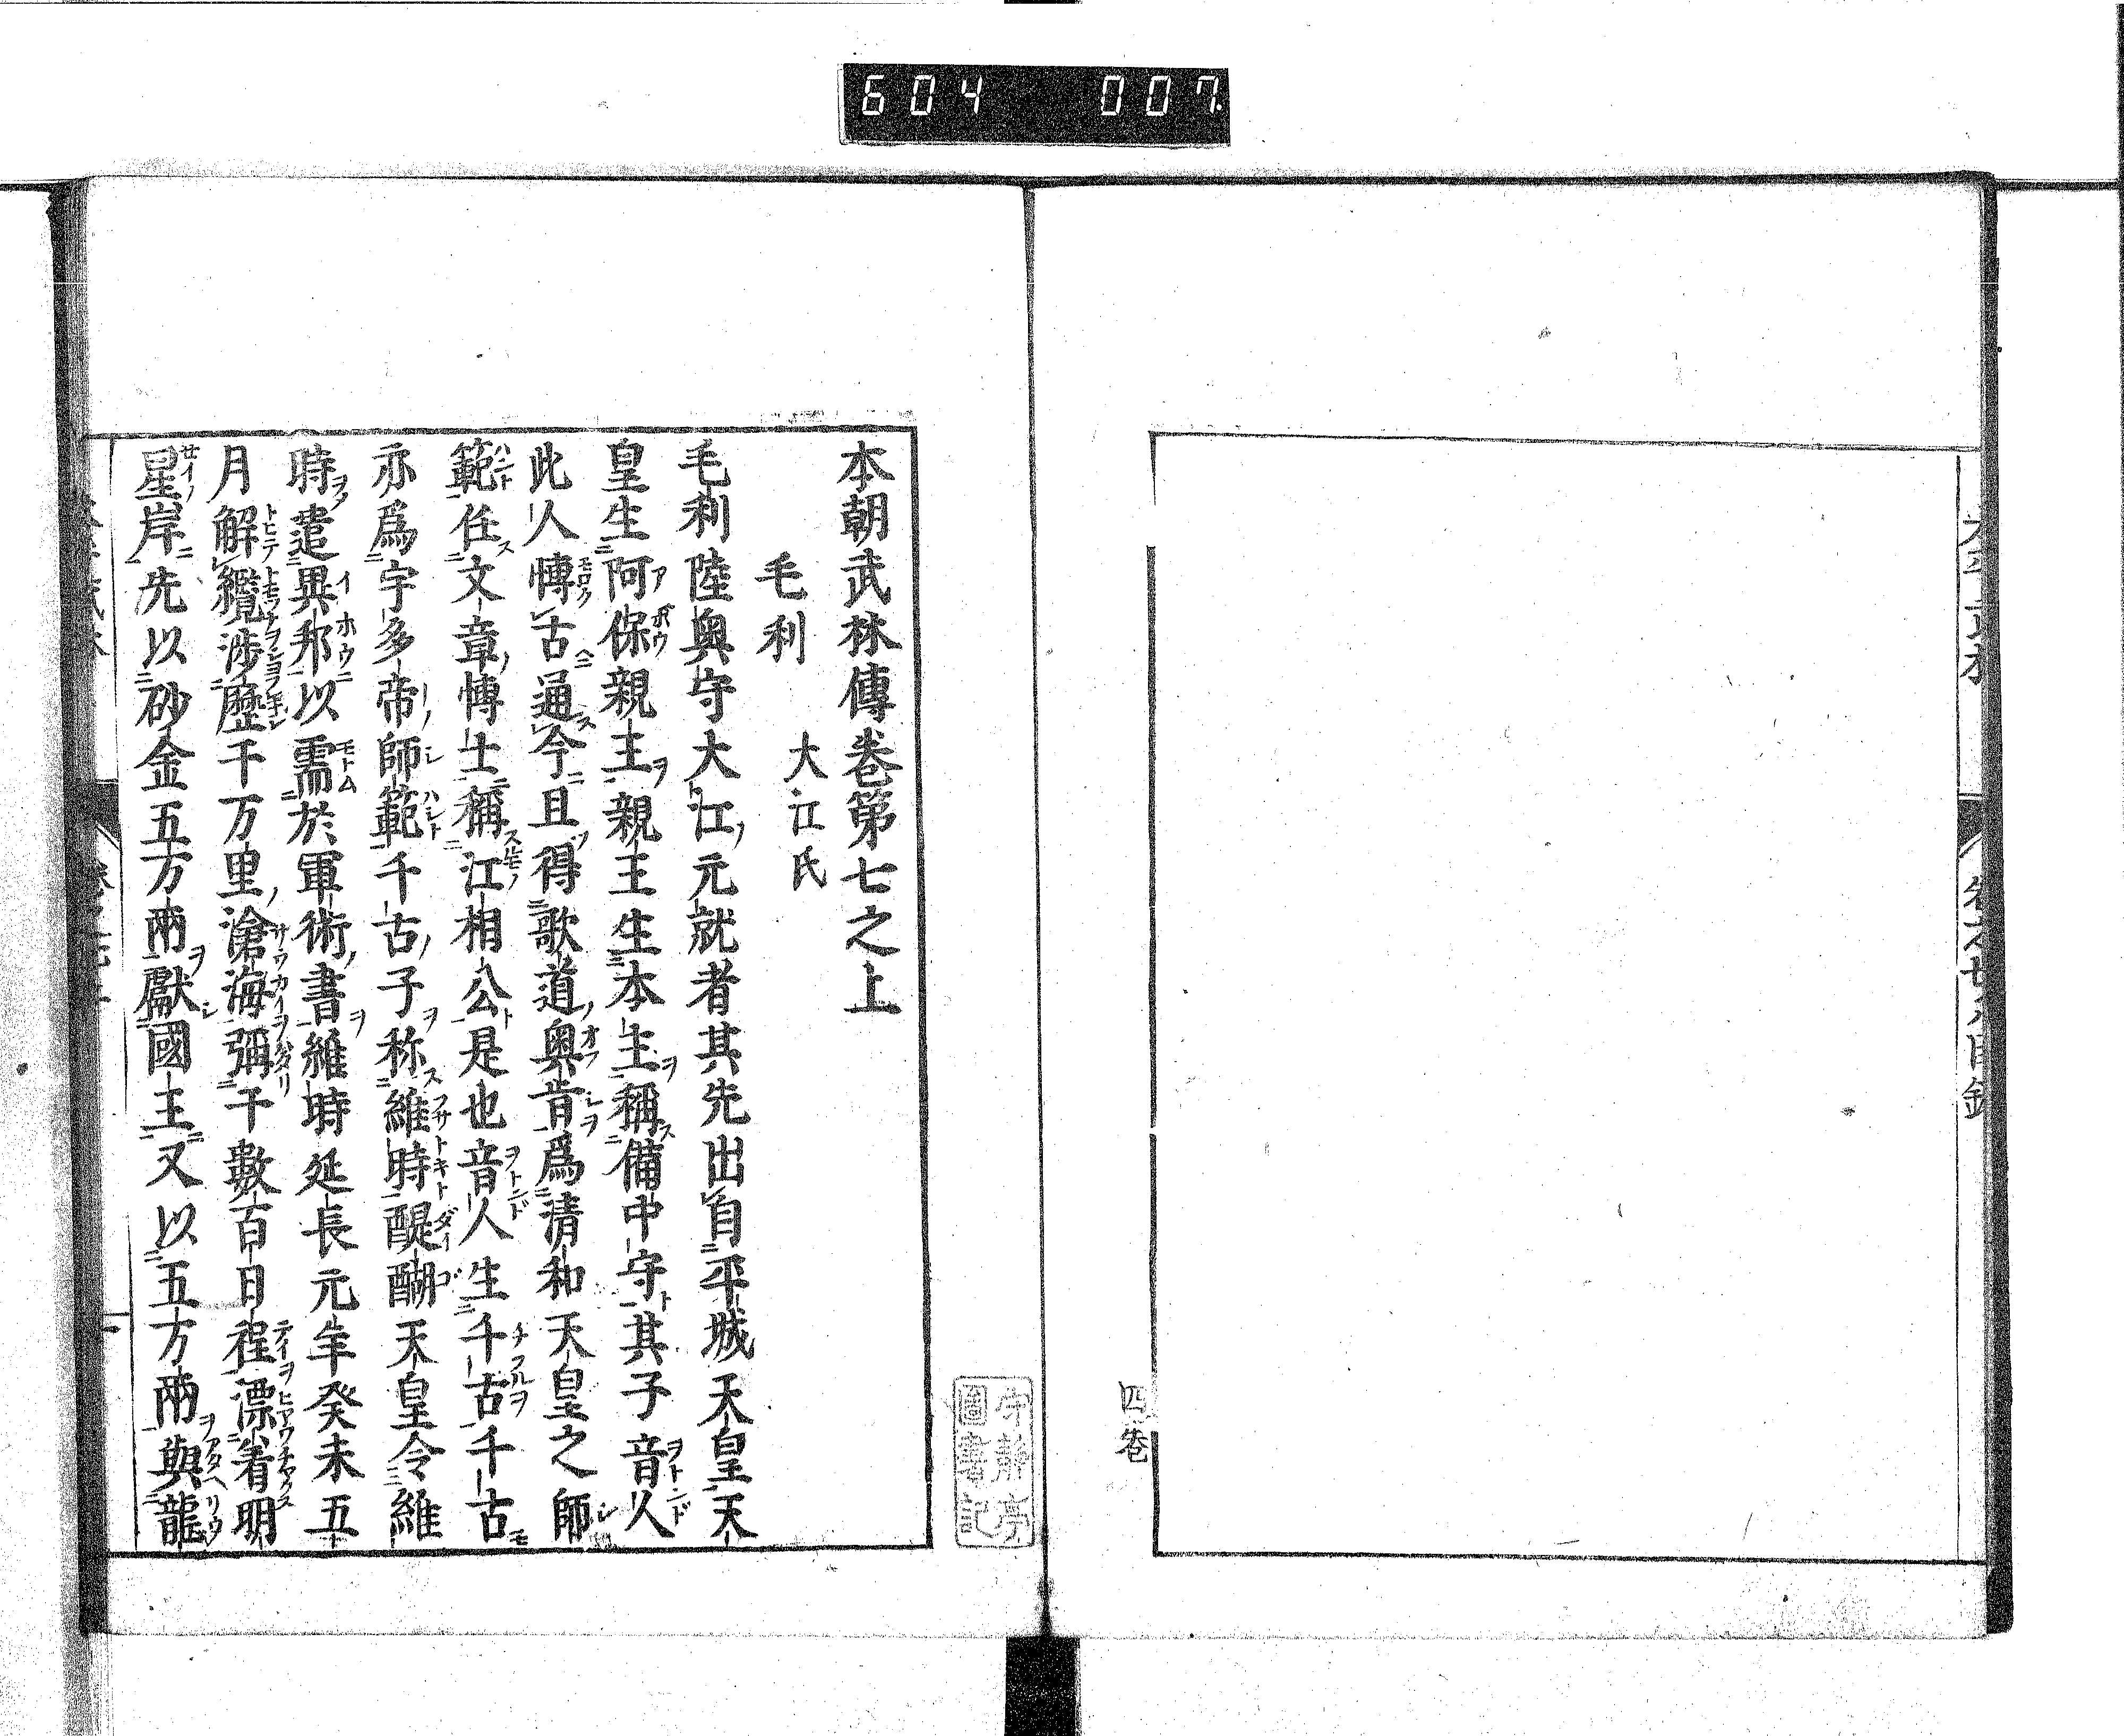 604 007
四巻
守静亭
圖書記
本朝武林傳巻第七之上
毛利 大江氏
毛利陸奥守大江元就者其先出自平城天皇天
皇生阿保親王親王生本主稱備中守其子音人
此人愽古通今且得歌道奥肯爲清和天皇之師
範任文章愽士稱江相公是也音人生千古千古
亦爲宇多帝師範千古子称維時醍醐天皇令維
時遣異邦以需於軍術書維時延長元年癸未五
月解纜渉歴千万里滄海彌于數百日程漂着明
星岸先以砂金五万兩獻國王又以五万兩與龍